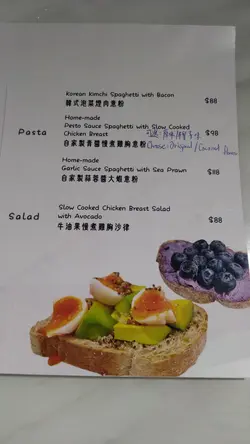 Korean Kimchi Spaghetti with Bacon $88
韓式泡菜煙肉意粉
Home-made
Pesto Sauce Spaghetti with Slow Cooked
Pasta Chicken Breast $98
自家製青醬慢煮雞胸意粉 Choose: Original /
Home-made
Garlic Sauce Spaghetti with Sea Prawn $98
自家製蒜蓉醬大蝦意粉
Slow Cooked Chicken Breast Salad
Salad with Avocado $88
牛油果慢煮雞胸沙律